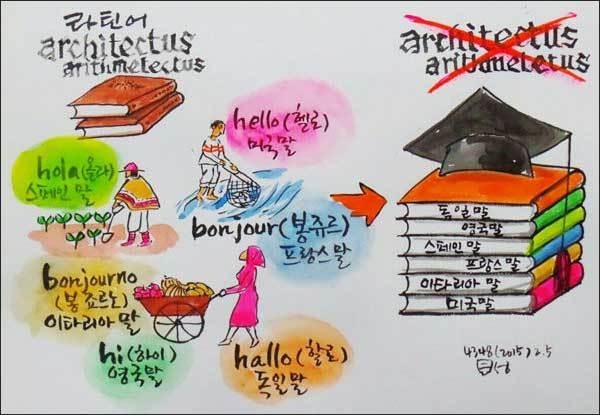 라틴어
architectus
arithmetectus
hello (헬로)
미국말
hola (올라)
스페인 말
bonjour (봉쥬르)
프랑스말
bonjourno
(봉죠르노)
이타리아 말
hi (하이)
영국말
hallo (할로)
독일말
architectus
독일말
영국말
스페인말
프랑스말
이타리아 말
미국말
4348(2015).2.5